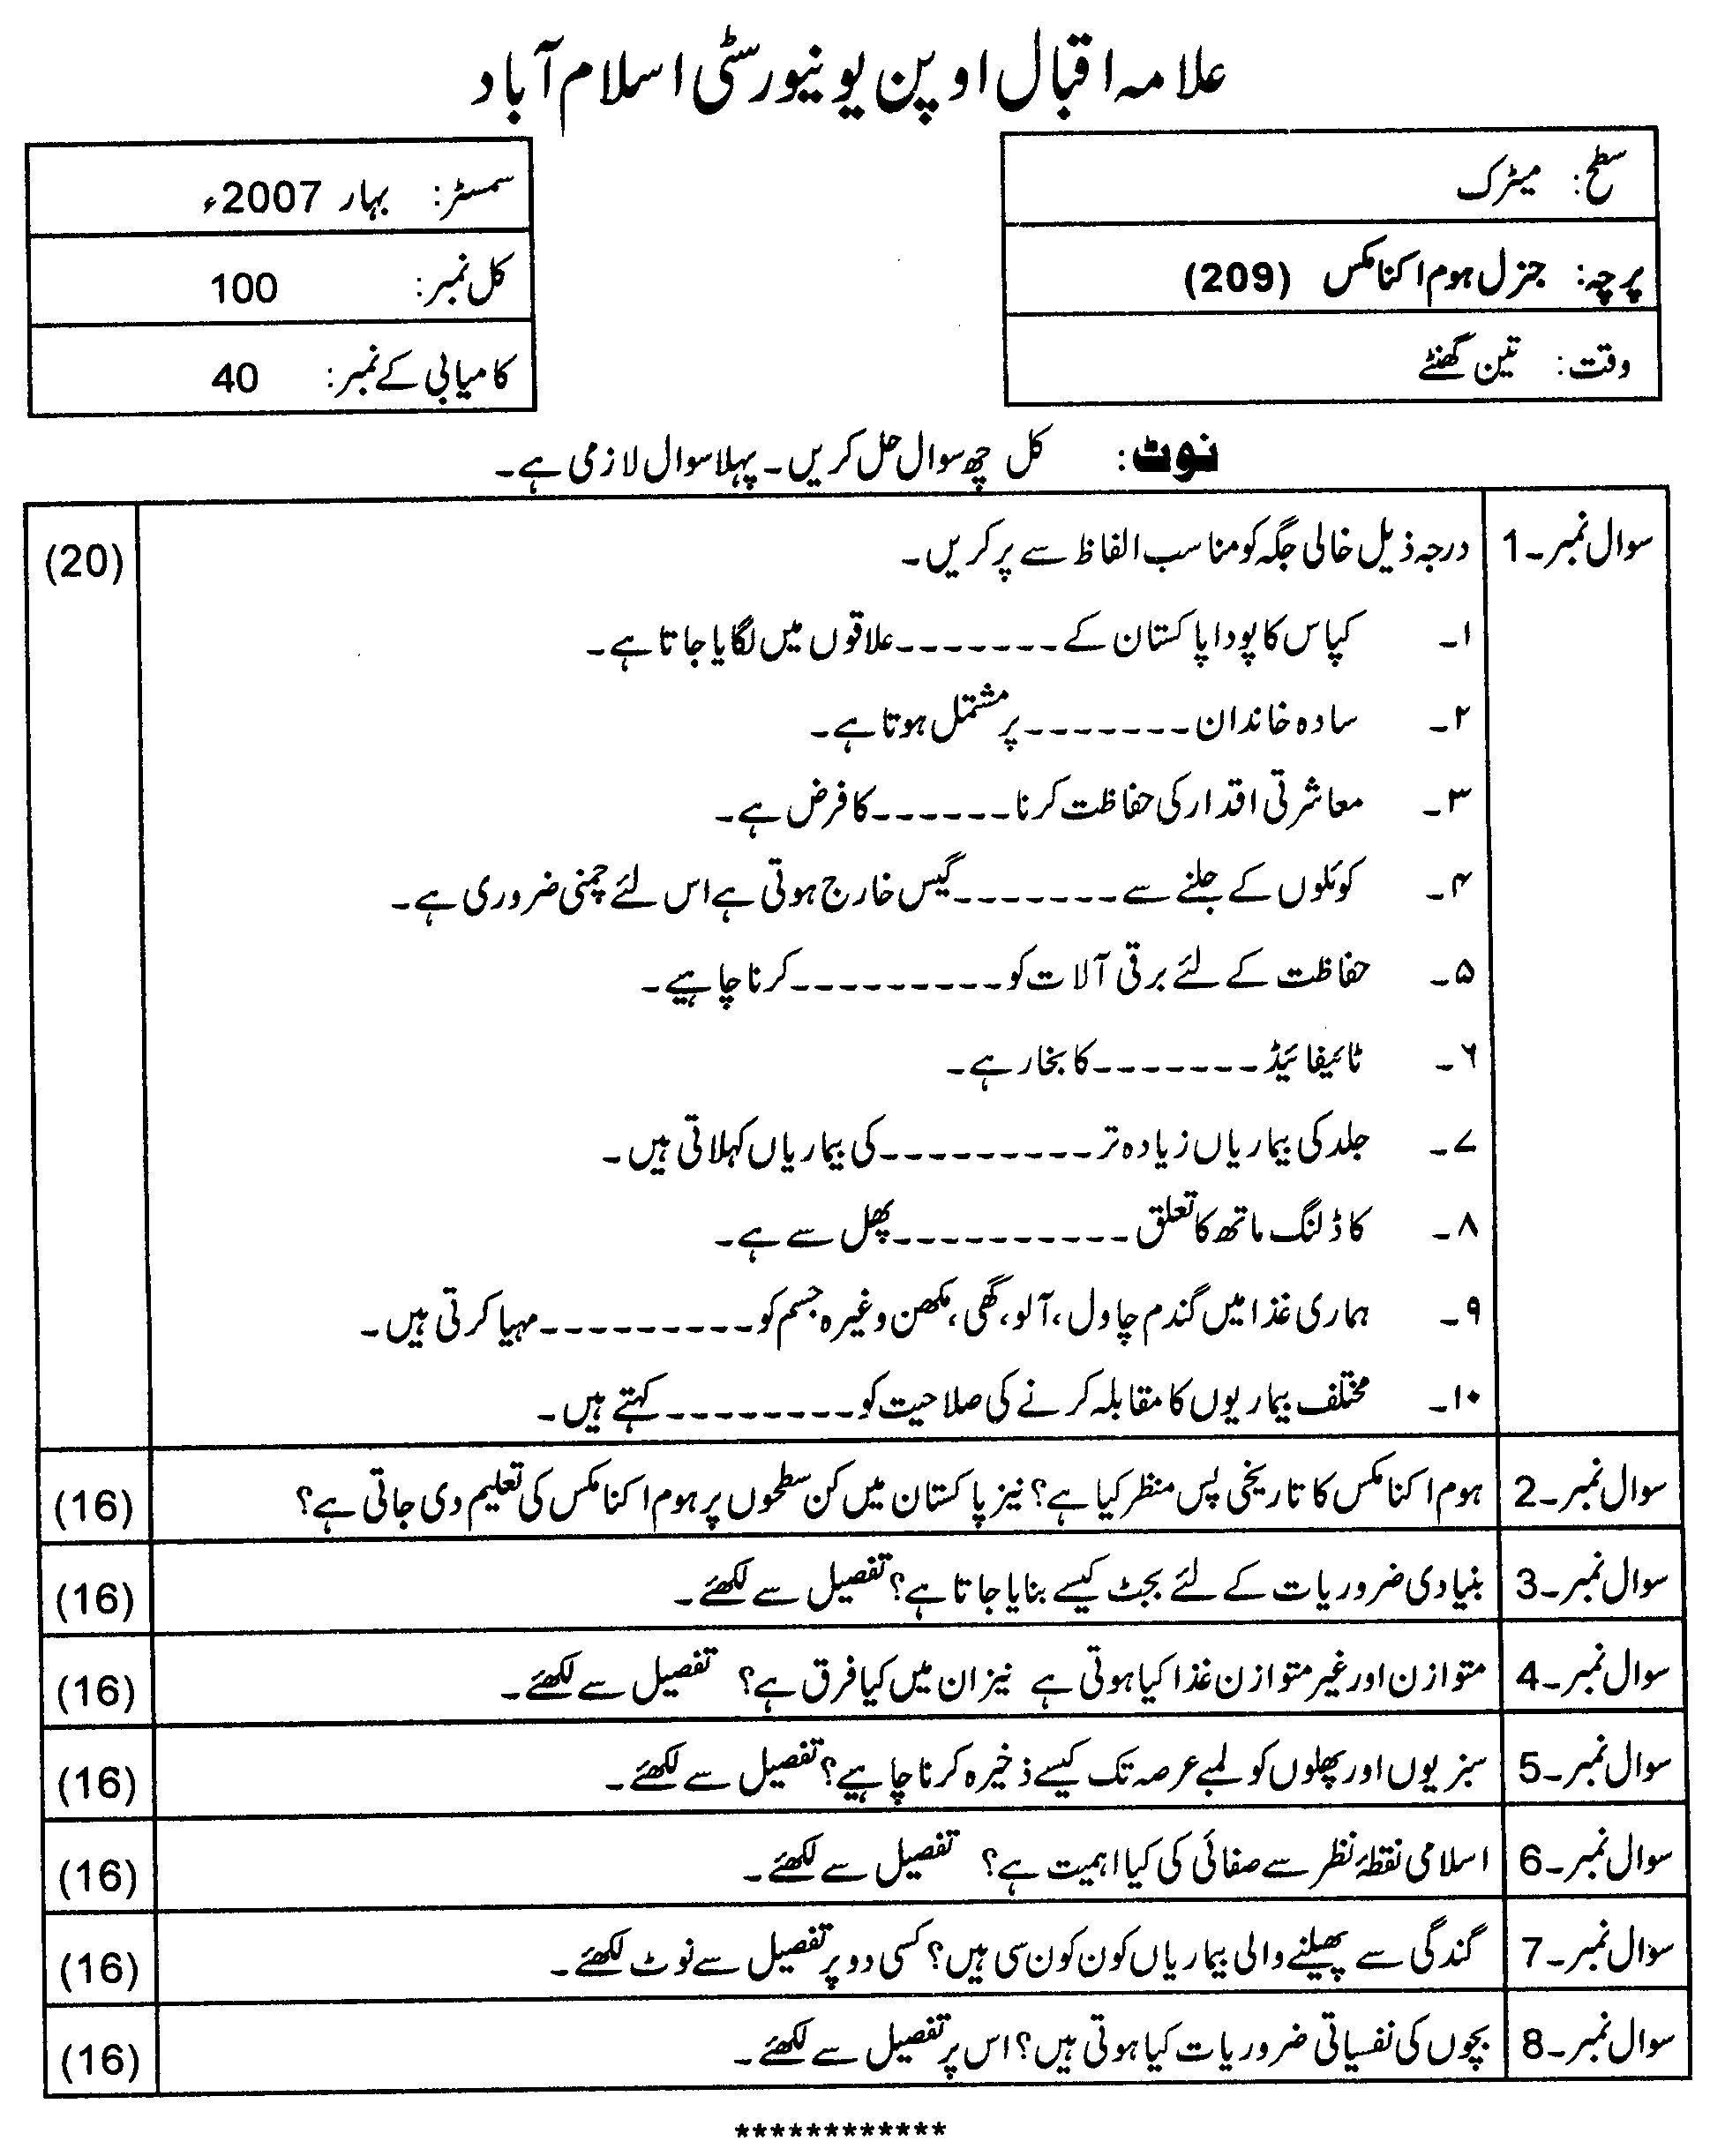 علامہ اقبال اوپن یونیورسٹی اسلام آباد
سطح: میٹرک
سمسٹر: بہار 2007ء
پرچہ: جنرل ہوم اکنامکس (209)
کل نمبر: 100
وقت: تین گھنٹے
کامیابی کے نمبر: 40
نوٹ: کل چھ سوال حل کریں۔ پہلا سوال لازمی ہے۔
سوال نمبر۔1 درجہ ذیل خالی جگہ کو مناسب الفاظ سے پر کریں۔ (20)
۱۔ کپاس کا پودا پاکستان کے ------- علاقوں میں لگایا جاتا ہے۔
۲۔ سادہ خاندان ------- پر مشتمل ہوتا ہے۔
۳۔ معاشرتی اقدار کی حفاظت کرنا ------ کا فرض ہے۔
۴۔ کوئلوں کے جلنے سے ------- گیس خارج ہوتی ہے اس لئے چمنی ضروری ہے۔
۵۔ حفاظت کے لئے برقی آلات کو --------- کرنا چاہیے۔
۶۔ ٹائیفائیڈ ------- کا بخار ہے۔
۷۔ جلد کی بیماریاں زیادہ تر --------- کی بیماریاں کہلاتی ہیں۔
۸۔ کاڈلنگ ماتھ کا تعلق ---------- پھل سے ہے۔
۹۔ ہماری غذا میں گندم چاول، آلو، گھی، مکھن وغیرہ جسم کو --------- مہیا کرتی ہیں۔
۱۰۔ مختلف بیماریوں کا مقابلہ کرنے کی صلاحیت کو -------- کہتے ہیں۔
سوال نمبر۔2 ہوم اکنامکس کا تاریخی پس منظر کیا ہے؟ نیز پاکستان میں کن سطحوں پر ہوم اکنامکس کی تعلیم دی جاتی ہے؟ (16)
سوال نمبر۔3 بنیادی ضروریات کے لئے بجٹ کیسے بنایا جاتا ہے؟ تفصیل سے لکھئے۔ (16)
سوال نمبر۔4 متوازن اور غیر متوازن غذا کیا ہوتی ہے نیز ان میں کیا فرق ہے؟ تفصیل سے لکھئے۔ (16)
سوال نمبر۔5 سبزیوں اور پھلوں کو لمبے عرصہ تک کیسے ذخیرہ کرنا چاہیے؟ تفصیل سے لکھئے۔ (16)
سوال نمبر۔6 اسلامی نقطۂ نظر سے صفائی کی کیا اہمیت ہے؟ تفصیل سے لکھئے۔ (16)
سوال نمبر۔7 گندگی سے پھیلنے والی بیماریاں کون کون سی ہیں؟ کسی دو پر تفصیل سے نوٹ لکھئے۔ (16)
سوال نمبر۔8 بچوں کی نفسیاتی ضروریات کیا ہوتی ہیں؟ اس پر تفصیل سے لکھئے۔ (16)
************